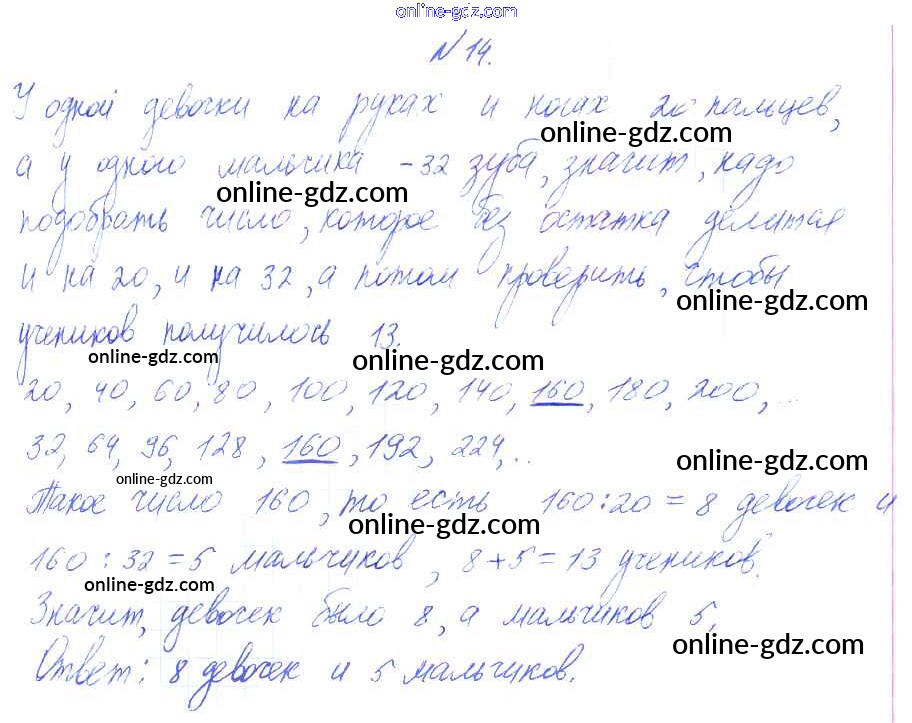 online-gdz.com
N 14.
У одной девочки на руках и ногах 20 пальцев,
online-gdz.com
а у одного мальчика - 32 зуба, значит, надо
online-gdz.com
подобрать число, которое без остатка делится
и на 20, и на 32, а потом проверить, чтобы
online-gdz.com
учеников получилось 13.
online-gdz.com online-gdz.com
20, 40, 60, 80, 100, 120, 140, 160, 180, 200, ...
32, 64, 96, 128, 160, 192, 224, ..
online-gdz.com
online-gdz.com
Такое число 160, то есть 160:20 = 8 девочек и
online-gdz.com
160 : 32 = 5 мальчиков, 8+5 = 13 учеников.
online-gdz.com
Значит, девочек было 8, а мальчиков 5.
online-gdz.com
Ответ: 8 девочек и 5 мальчиков.